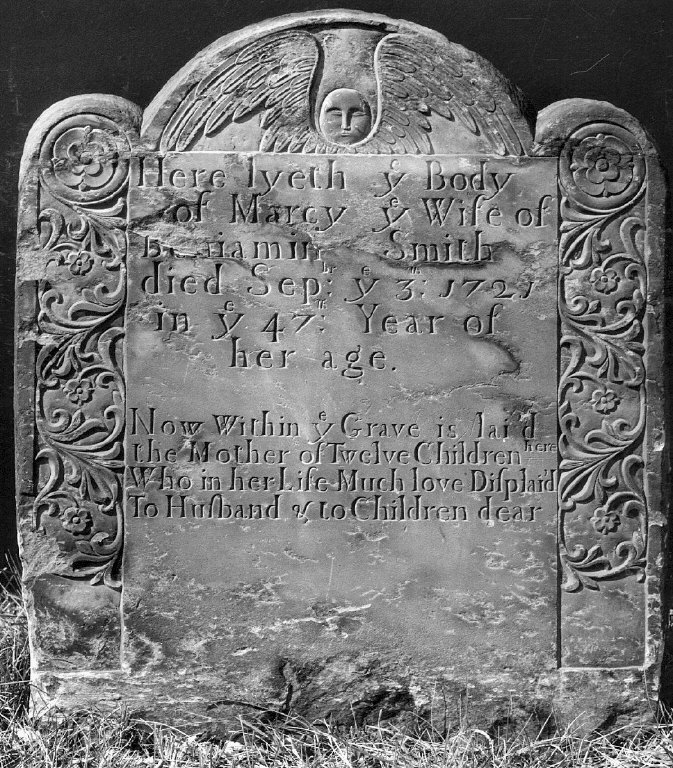 Here lyeth yᵉ Body
of Marcy yᵉ Wife of
Beniamin Smith
died Sepᵗʳ: yᵉ 3ᵗʰ: 1721
in yᵉ 47ᵗʰ: Year of
her age.
Now Within yᵉ Grave is lai'd
the Mother of Twelve Children here
Who in her Life Much love Diſplai'd
To Huſband & to Children dear